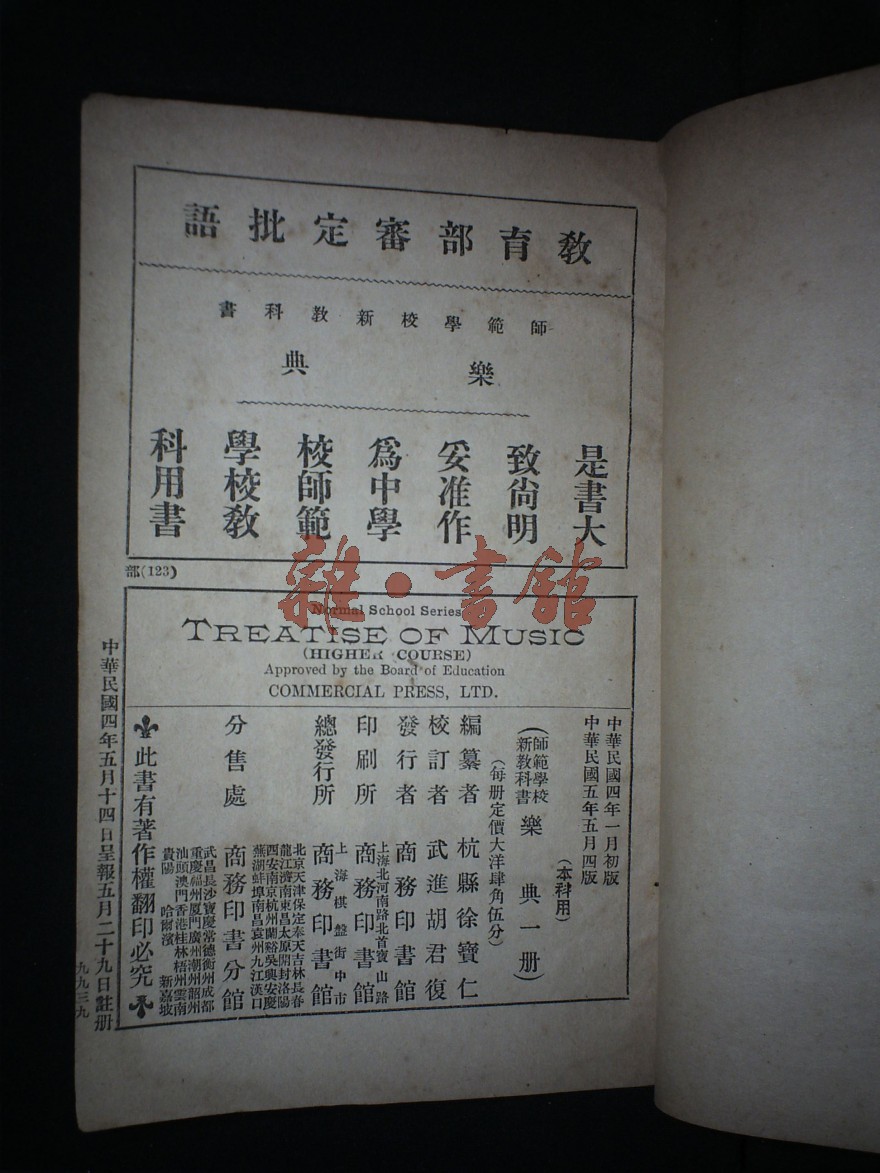 教育部審定批語
師範學校新教科書
樂典
是書大
致尙明
妥准作
爲中學
校師範
學校教
科用書
部(123)
雜·書館
Normal School Series
TREATISE OF MUSIC
(HIGHER COURSE)
Approved by the Board of Education
COMMERCIAL PRESS, LTD.
中華民國四年一月初版
中華民國五年五月四版
(本科用)
(師範學校新教科書 樂典一册)
(每册定價大洋肆角伍分)
編纂者 杭縣徐寶仁
校訂者 武進胡君復
發行者 商務印書館
上海北河南路北首寶山路
印刷所 商務印書館
上海棋盤街中市
總發行所 商務印書館
北京天津保定奉天吉林長春
龍江濟南東昌太原開封洛陽
西安南京杭州蘭谿吳興安慶
蕪湖蚌埠南昌袁州九江漢口
分售處 商務印書分館
武昌長沙寶慶常德衡州成都
重慶福州厦門廣州潮州韶州
汕頭澳門香港桂林梧州雲南
貴陽 哈爾濱 新嘉坡
此書有著作權翻印必究
中華民國四年五月十四日呈報五月二十九日註册
九九三九